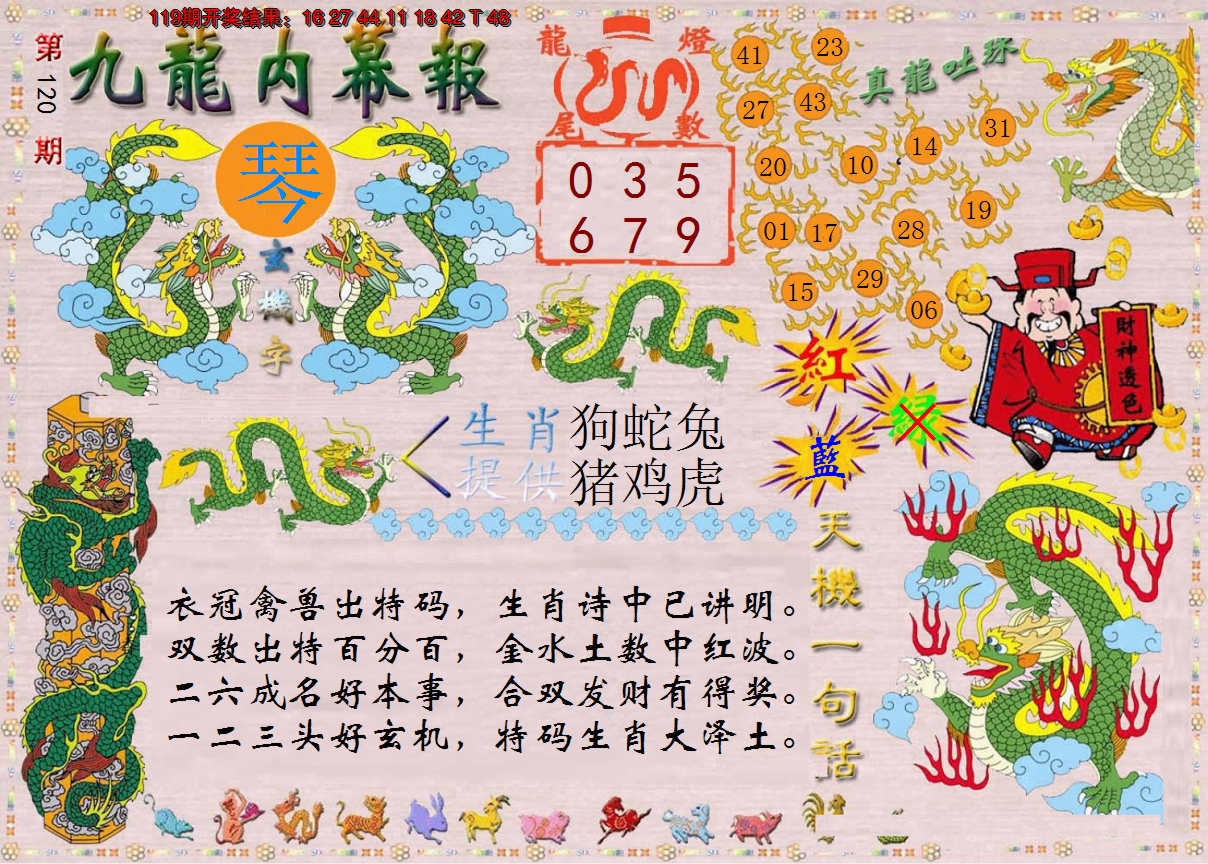 119期开奖结果：16 27 44 11 18 42 T 48
第120期
九龍内幕報
琴
玄機字
龍燈尾數
0 3 5
6 7 9
真龍吐珠
41 23
27 43
20 10 14 31
01 17 28 19
15 29 06
財神透色
紅
绿
藍
生肖提供
狗蛇兔
猪鸡虎
衣冠禽兽出特码，生肖诗中已讲明。
双数出特百分百，金水土数中红波。
二六成名好本事，合双发财有得奖。
一二三头好玄机，特码生肖大泽土。
天機一句話